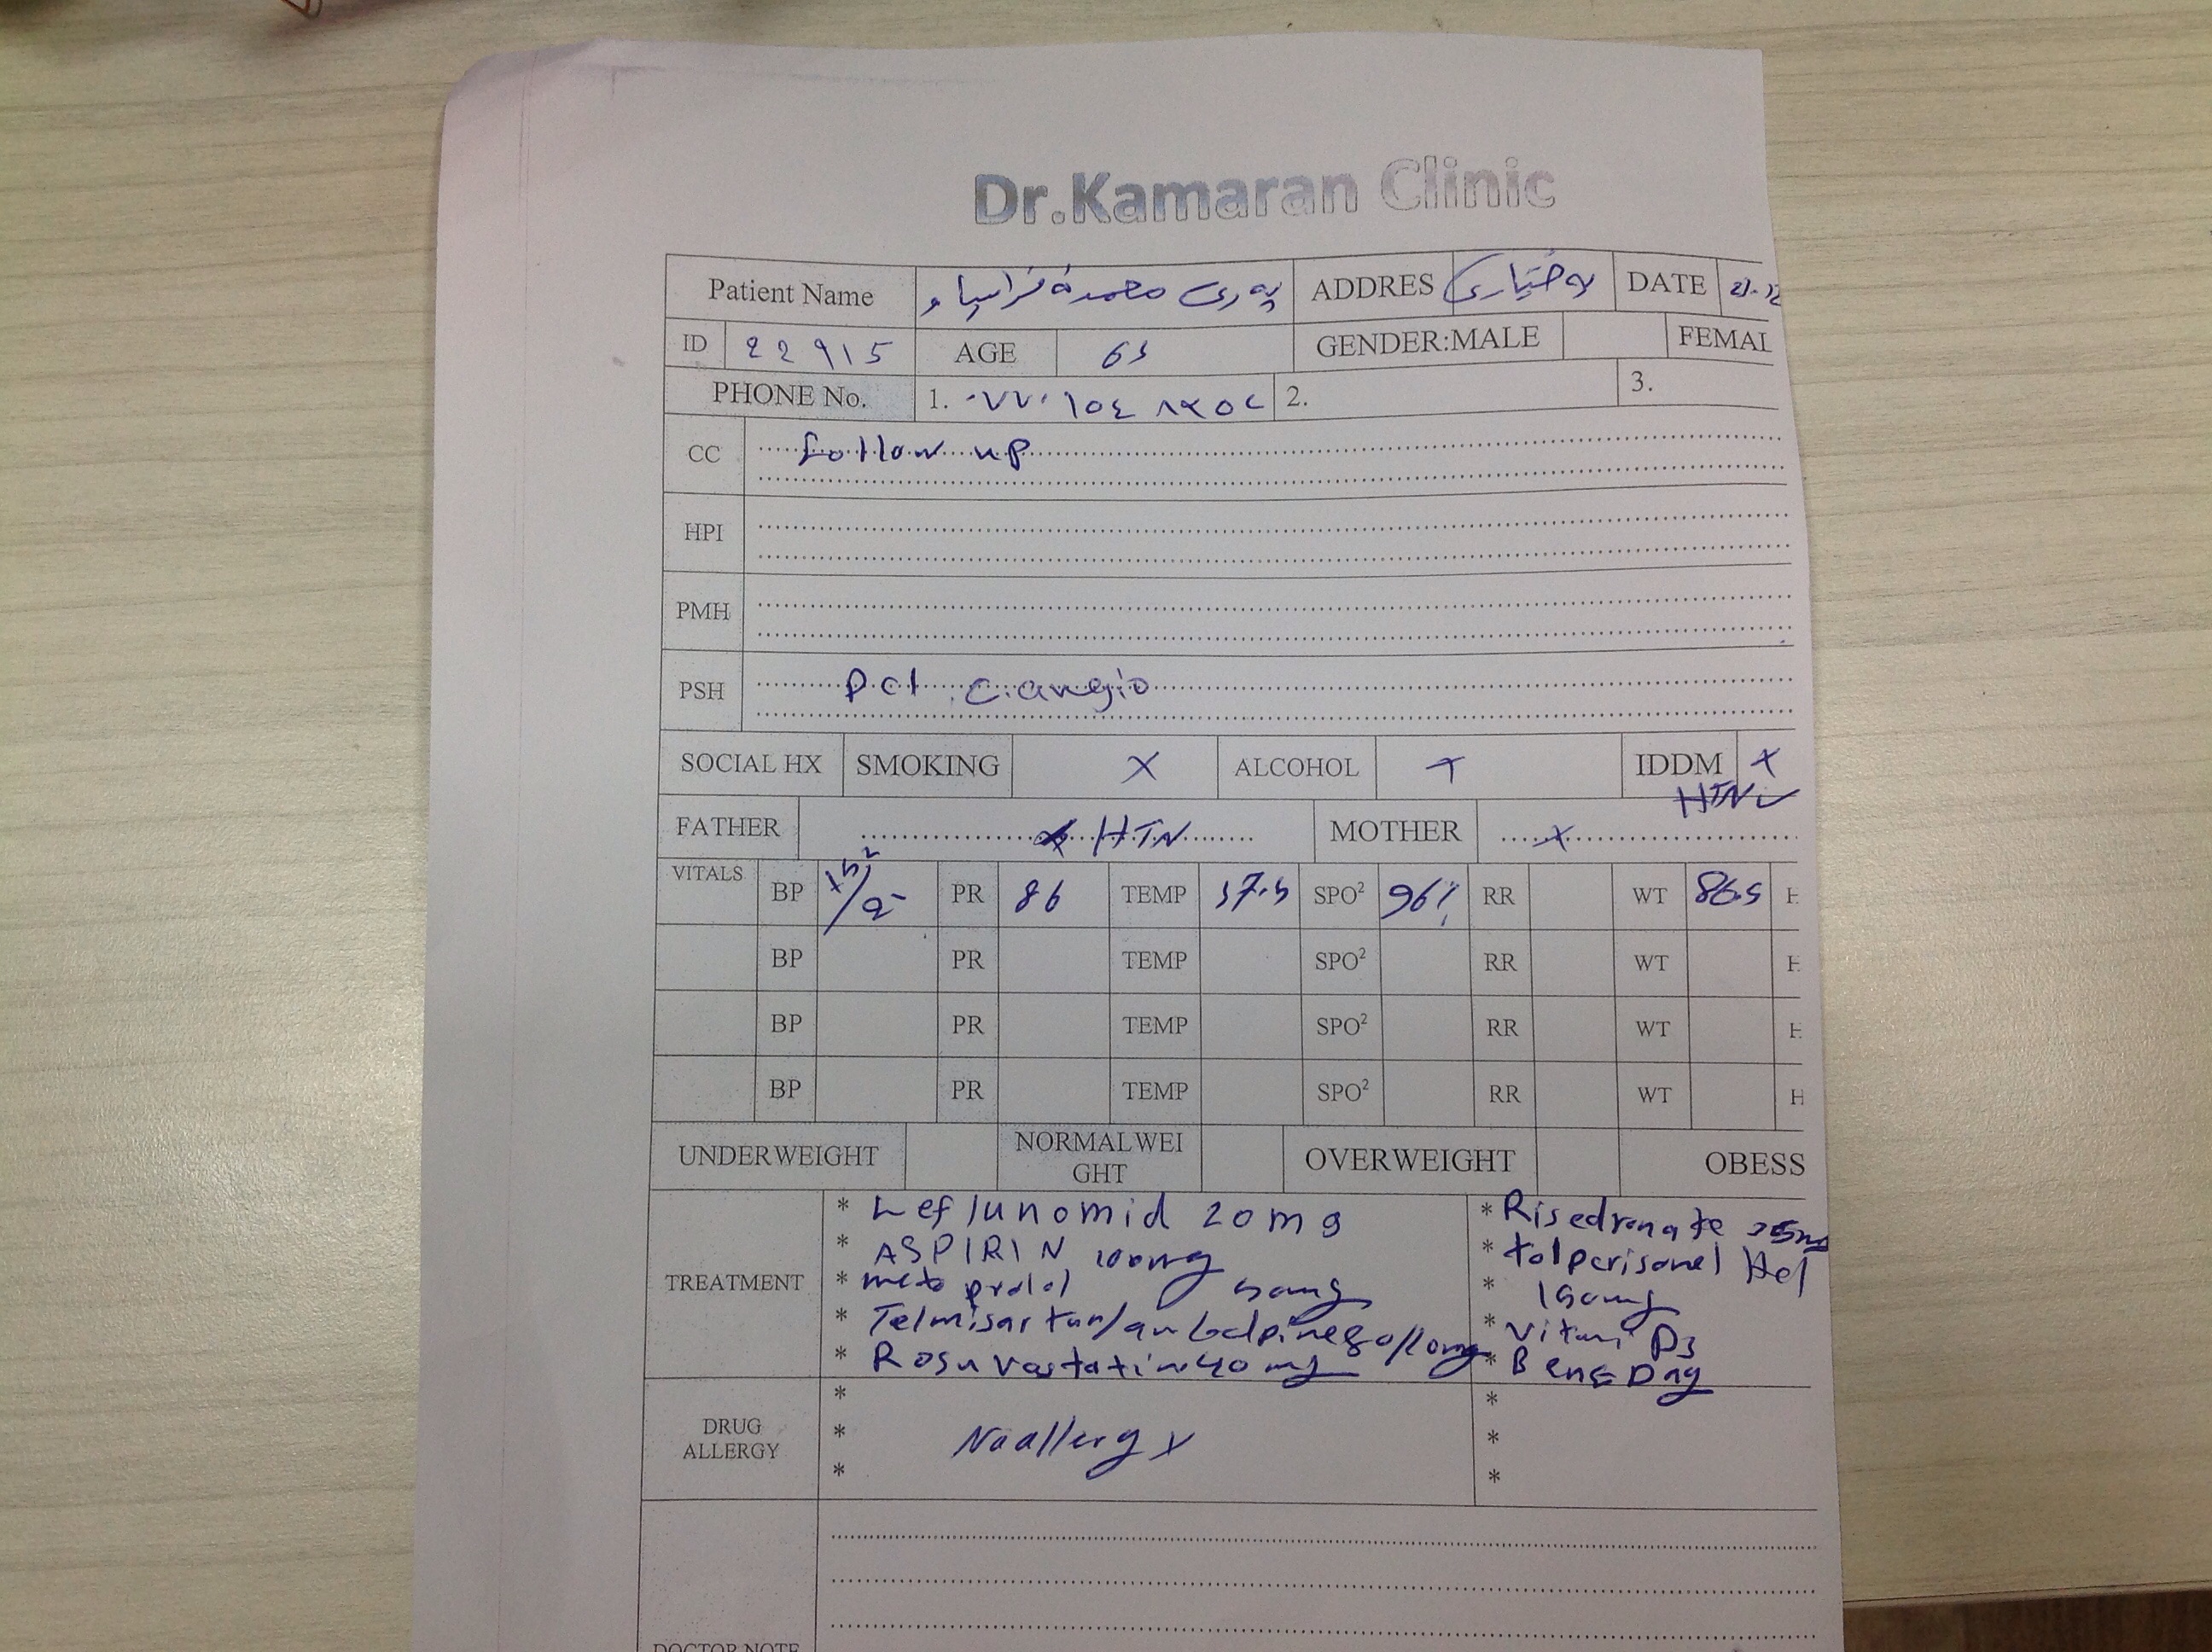 Dr.Kamaran Clinic
Patient Name پەری محمد فراسیاو ADDRES بەختیاری DATE
ID 22915 AGE 63 GENDER:MALE FEMAL
PHONE No. 1. 2. 3.
CC follow up
HPI
PMH
PSH pci c.angio
SOCIAL HX SMOKING X ALCOHOL X IDDM X
HTN ✓
FATHER HTN MOTHER X
VITALS BP PR 86 TEMP 37.5 SPO² 96% RR WT 86.5 H
BP PR TEMP SPO² RR WT H
BP PR TEMP SPO² RR WT H
BP PR TEMP SPO² RR WT H
UNDERWEIGHT NORMALWEI
GHT OVERWEIGHT OBESS
TREATMENT
* Leflunomid 20mg
* ASPIRIN 100mg
* metoprolol 50mg
* Telmisartan/amlodpine 80/10mg
* Rosuvastatin 40mg
* Risedronate 35mg
* tolperisonel Hcl
* 150mg
* D3
*
DRUG
ALLERGY
*
* No allergy
*
*
*
*
DOCTOR NOTE